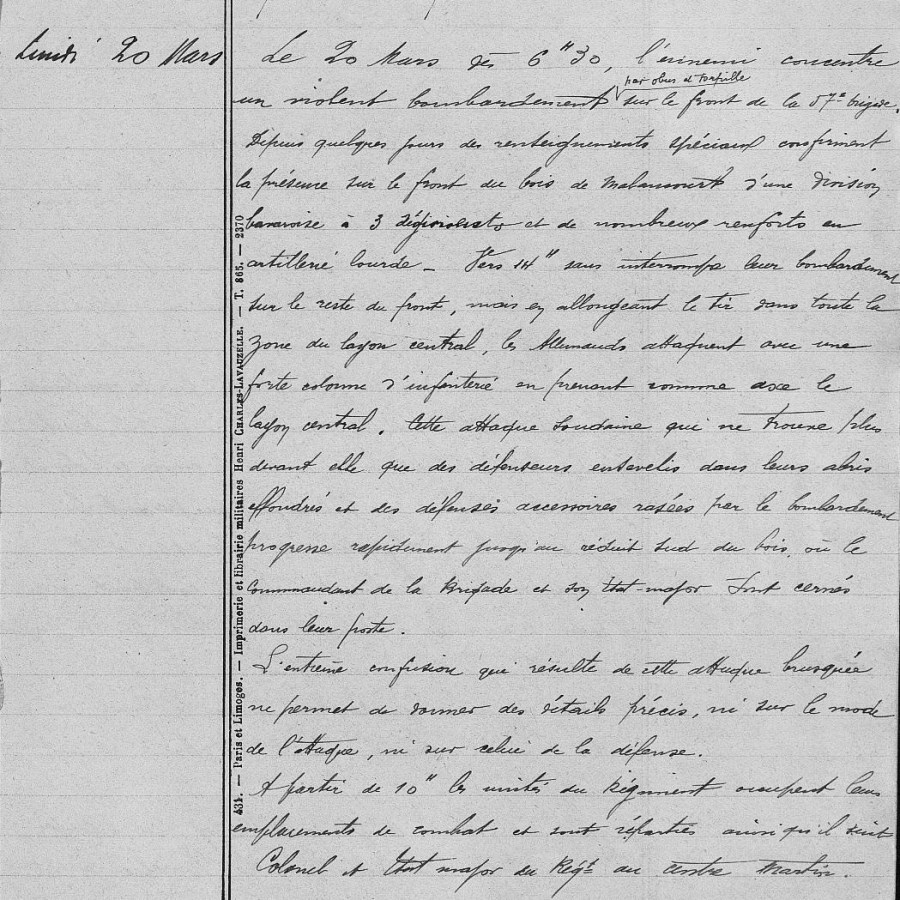 Lundi 20 Mars
Le 20 Mars dès 6ʰ 30, l'ennemi concentre
par obus et torpille
un violent bombardement sur le front de la 57ᵉ brigade.
Depuis quelques jours des renseignements spéciaux confirment
la présence sur le front du bois de Malancourt d'une division
bavaroise à 3 régiments et de nombreux renforts en
artillerie lourde - Vers 14ʰ sans interrompre leur bombardement
sur le reste du front, mais en allongeant le tir dans toute la
zone du layon central, les Allemands attaquent avec une
forte colonne d'infanterie en prenant comme axe le
layon central. Cette attaque soudaine qui ne trouve plus
devant elle que des défenseurs ensevelis dans leurs abris
effondrés et des défenses accessoires rasées par le bombardement
progresse rapidement jusqu'au réduit sud du bois, où le
Commandant de la Brigade et son Etat-major sont cernés
dans leur poste.
L'extrême confusion qui résulte de cette attaque brusquée
ne permet de donner des détails précis, ni sur le mode
de l'attaque, ni sur celui de la défense.
A partir de 10ʰ les unités du Régiment occupent leurs
emplacements de combat et sont réparties ainsi qu'il suit
Colonel et Etat major du Régᵗ au centre Martin.
434. — Paris et Limoges. — Imprimerie et librairie militaires Henri CHARLES-LAVAUZELLE. — T. 865. — 2370